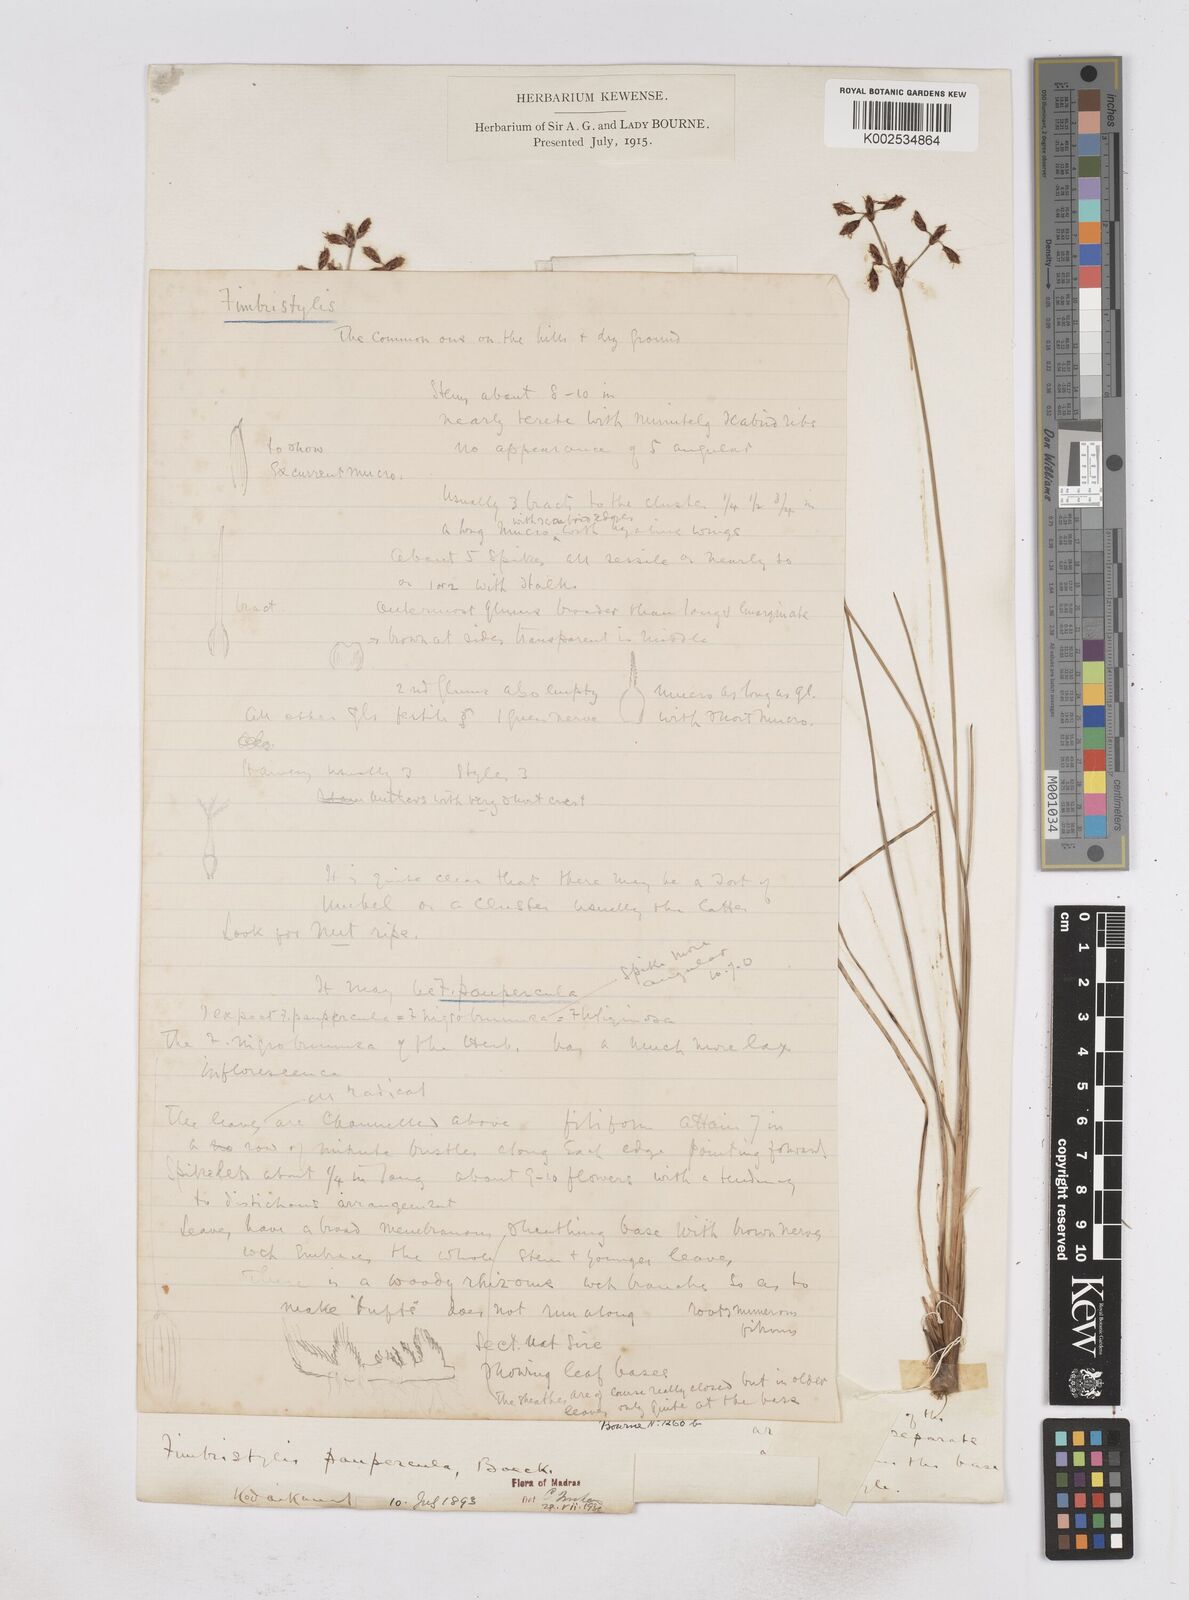 HERBARIUM KEWENSE.
Herbarium of Sir A. G. and LADY BOURNE.
Presented July, 1915.
ROYAL BOTANIC GARDENS KEW
K002534864
Fimbristylis
The common one on the hills + dry ground
Stems about 8-10 in
nearly terete with minutely scabrid ribs
no appearance of 5 angular
to show
Excurrent mucro.
Usually 3 bracts to the cluster 1/4 1/2 3/4 in
with scabrid edges
a long mucro with hyaline wings
About 5 spikes all sessile or nearly so
or 1 or 2 with stalks
bract.
Outermost glume broader than long & emarginate
brown at sides transparent in middle
2nd glume also empty
mucro as long as gl.
All other gls fertile 1 green nerve
with short mucro.
Stamens usually 3 Styles 3
Anthers with very short crest
It is quite clear that there may be a sort of
umbel or a cluster usually the latter
Look for Nut ripe.
Spike more
angular
It may be F. paupercula
I expect F. paupercula = F nigrobrunnea = F uliginosa
The F. nigrobrunnea of the Herb. has a much more lax
inflorescence
all radical
The leaves are channelled above filiform attain 7 in
a row of minute bristles along each edge pointing forward.
Spikelets about 1/4 in long about 9-10 flowers with a tendency
to distichous arrangement
Leaves have a broad membranous sheathing base with brown nerves
wch embraces the whole stem + younger leaves
There is a woody rhizome wch branches so as to
make 'tufts' does not run along roots numerous
fibrous
Sect. Nat Size
showing leaf bases
The sheathes are of course really closed but in older
leaves only quite at the base
Bourne No. 1260 b
Fimbristylis paupercula, Boeck.
Kodaikanal 10. July 1893
Flora of Madras
Det
of the
separate
the base
inches
centimeters
Don Williams
M001034
cm
0 1 2 3 4 5 6 7 8 9 10
copyright reserved
Royal Botanic Gardens
Kew